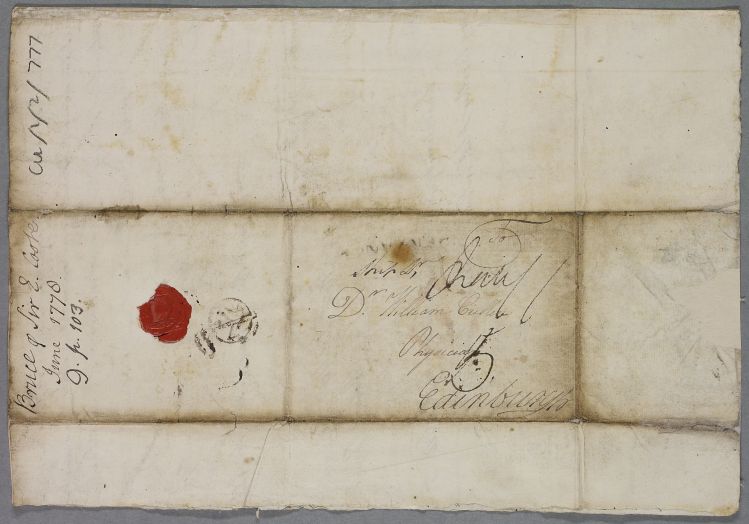 Cul/1/2/777
Bruce of Sir E. Cooke
June 1778.
9. p. 103.
To
Dr William Cullen
Physician
Edinburgh